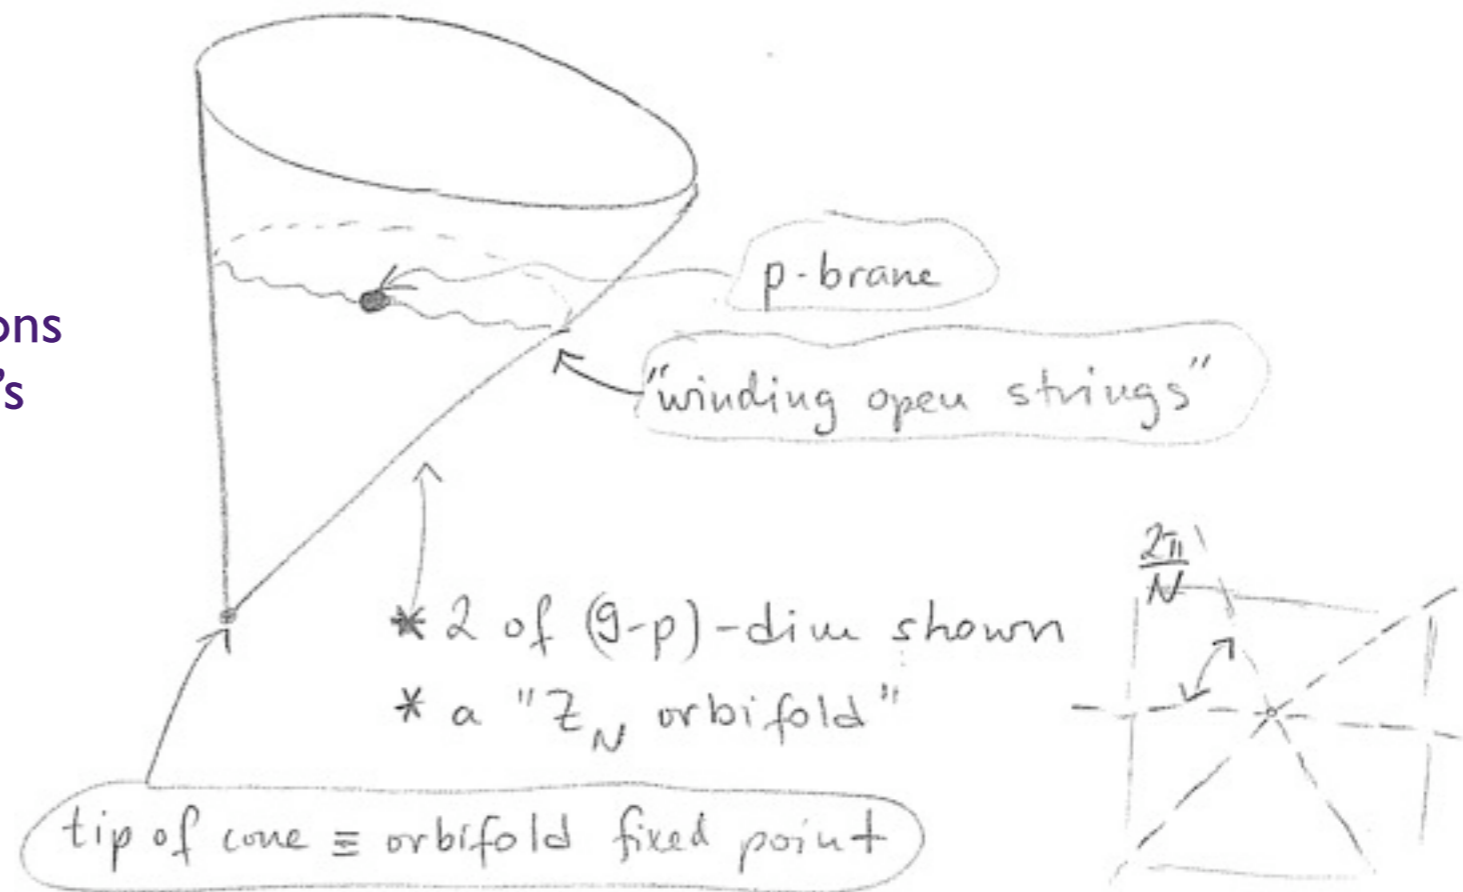 p-brane
ons
's
"winding open strings"
2π
N
* 2 of (9-p)-dim shown
* a "Z_N orbifold"
tip of cone ≡ orbifold fixed point